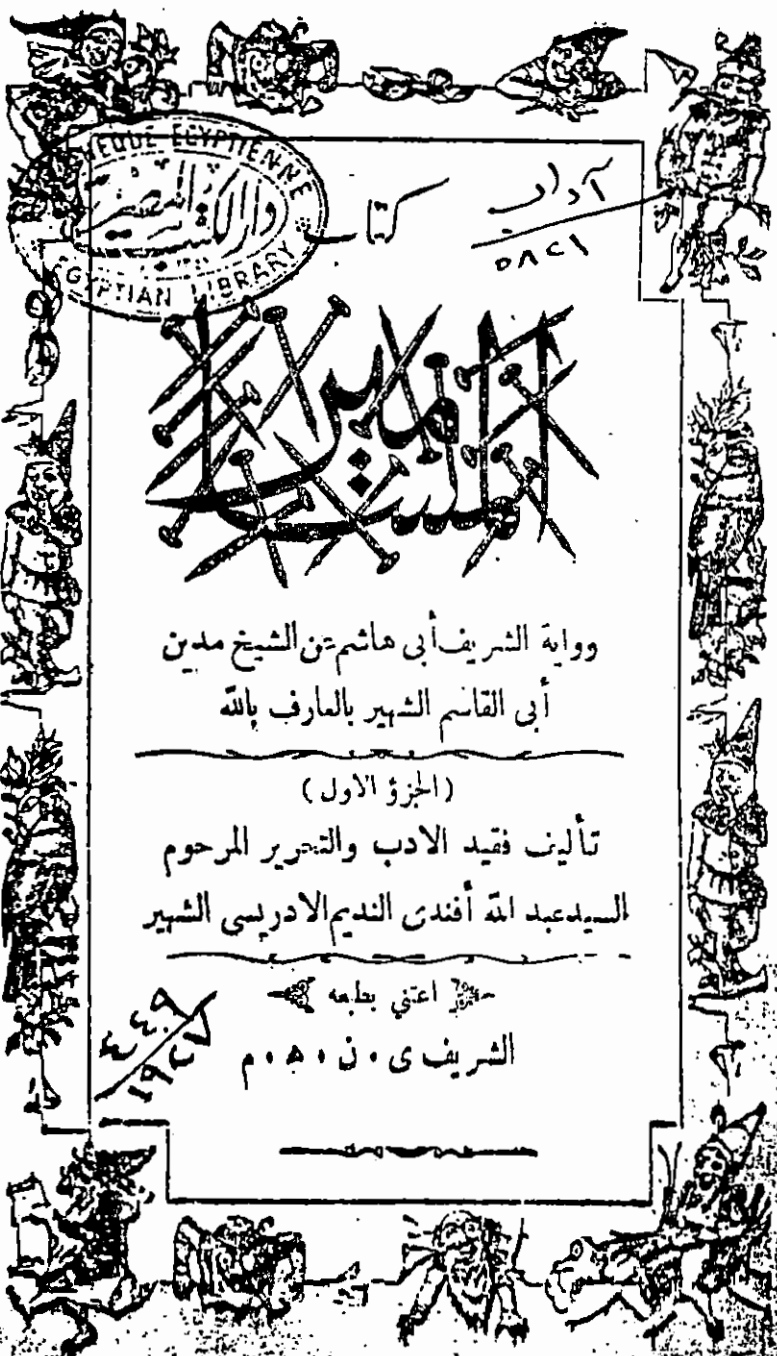 آداب
٥٨٢١
EGYPTIENNE
دار الكتب المصرية
EGYPTIAN LIBRARY
كتاب
المسامير
رواية الشريف أبى هاشم عن الشيخ مدين
أبى القاسم الشهير بالعارف بالله
(الجزؤ الاول)
تأليف فقيد الادب والتحرير المرحوم
السيد عبد الله أفندى النديم الادريسى الشهير
اعتني بطبعه
الشريف ى . ن . ه . م